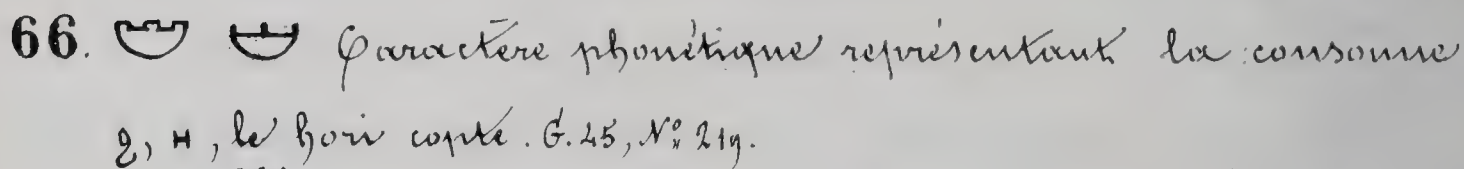 66. Caractère phonétique représentant la consonne
ϩ, H, le hori copte. G. 45, Nº 219.